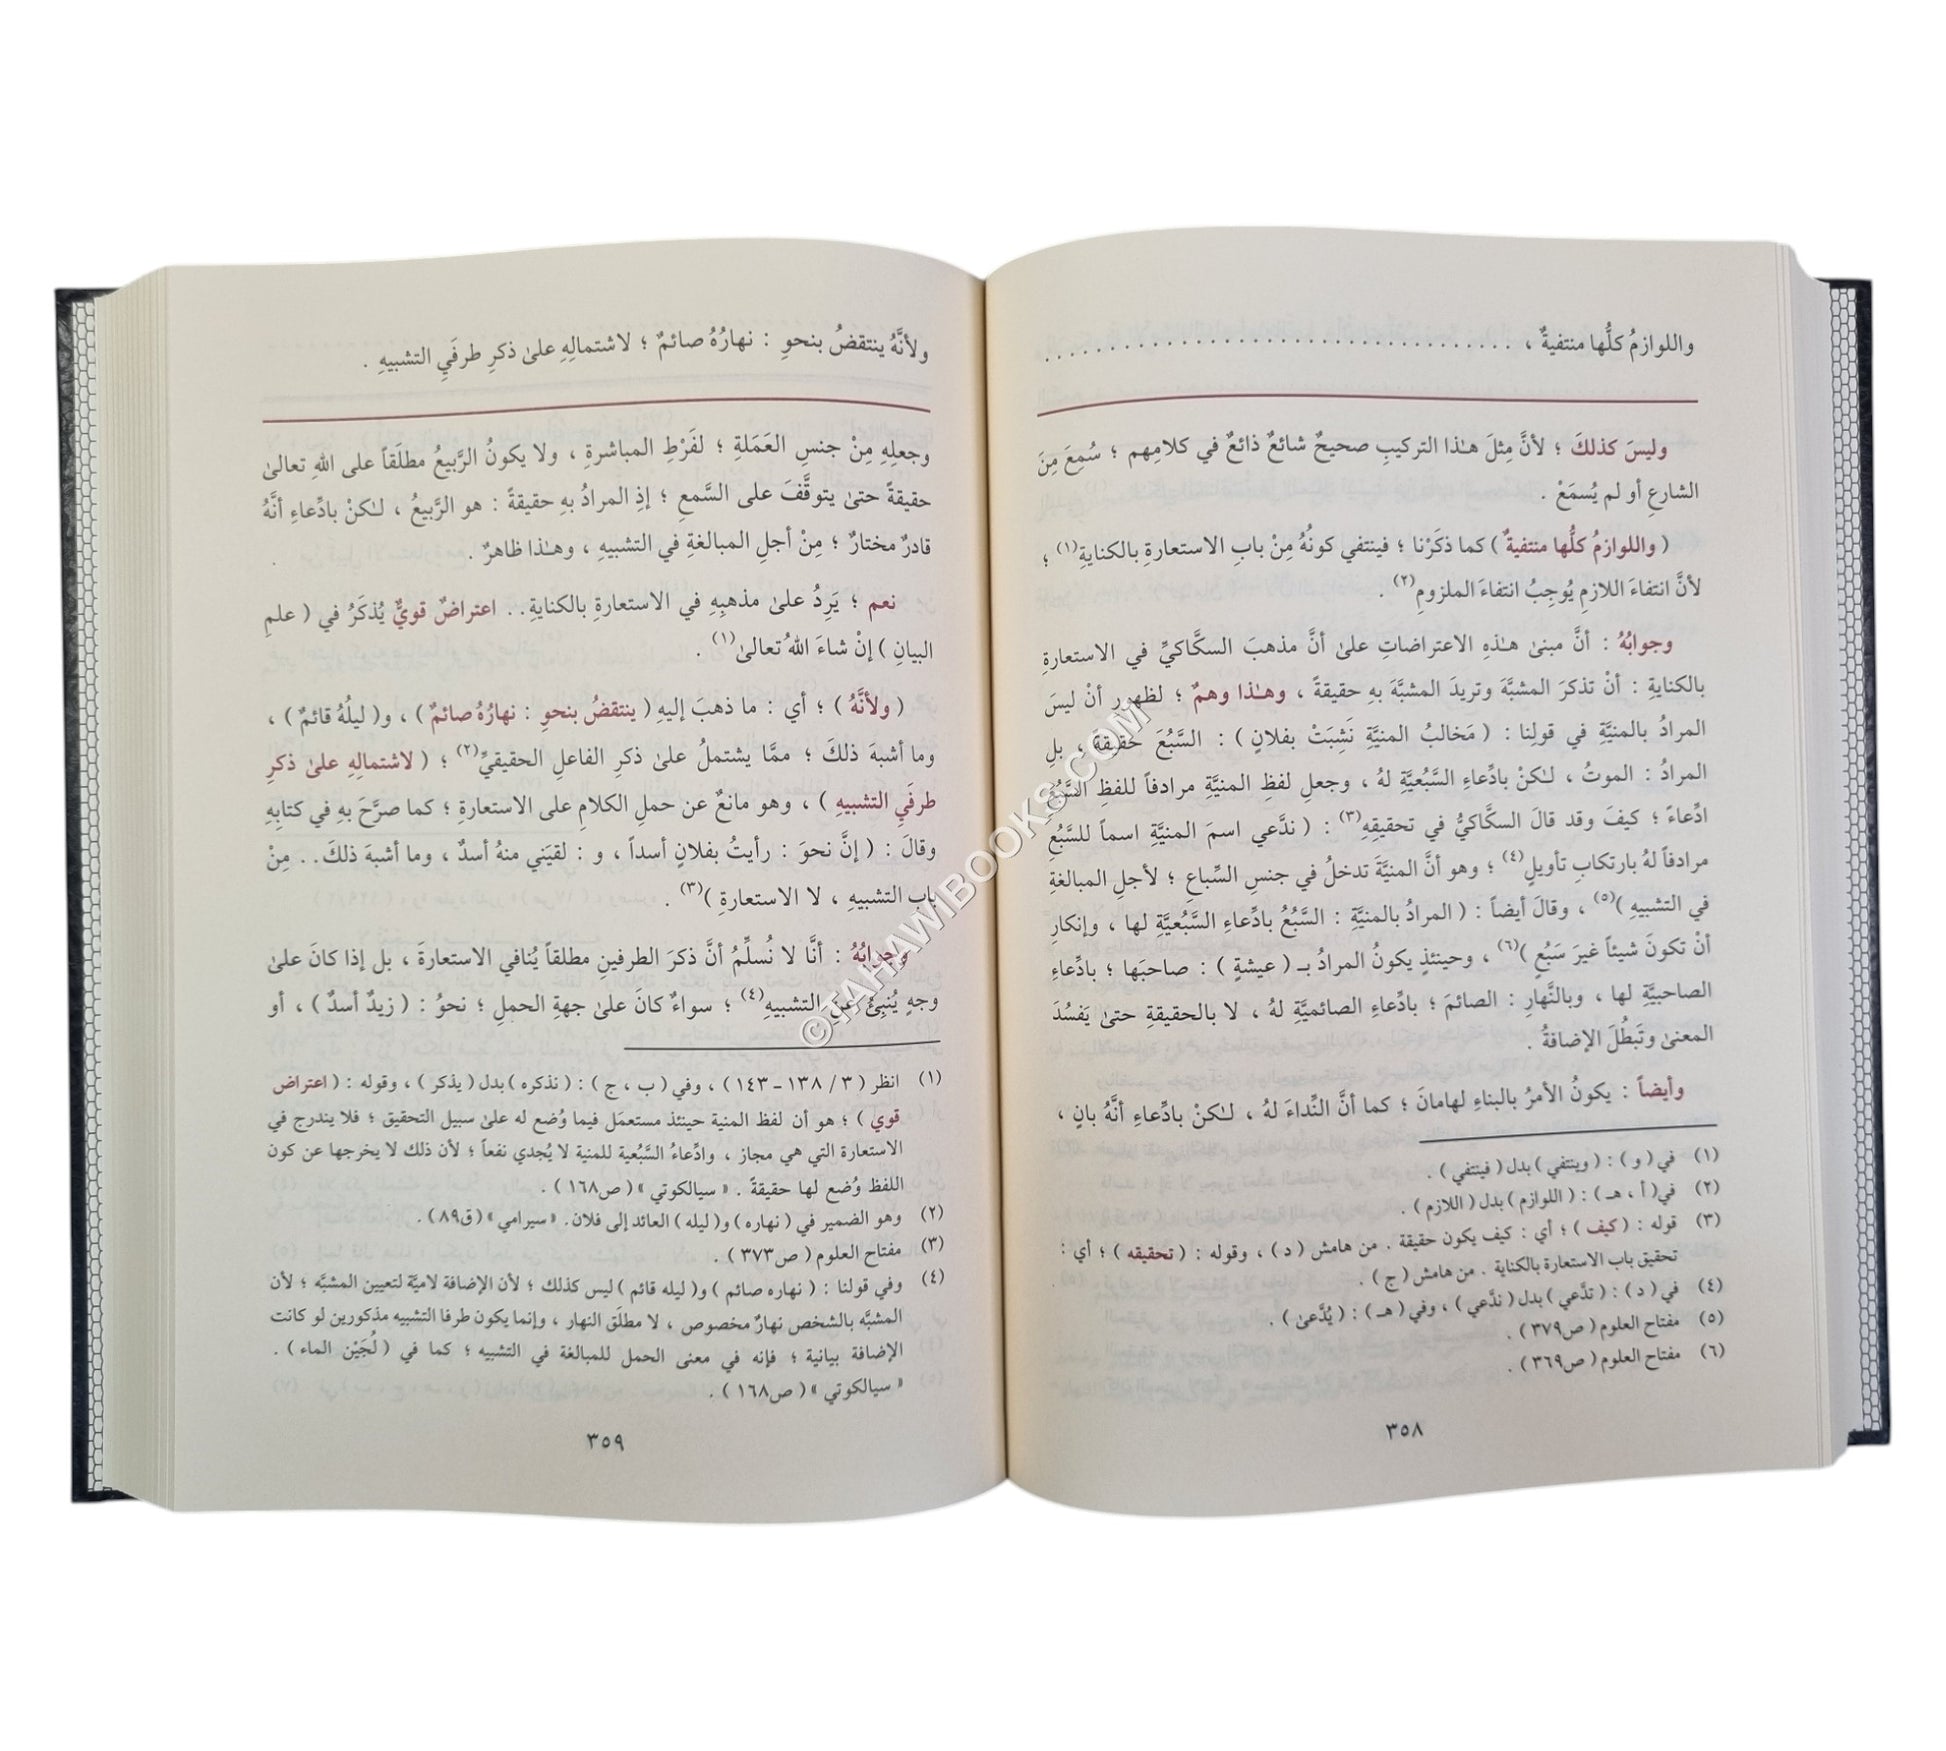 واللوازمُ كلُّها منتفيةٌ ، . . . . . . . . . . . . . . . . . . . . . . . . . . . . . . . . . . . . .
وليسَ كذلكَ ؛ لأنَّ مِثلَ هـٰذا التركيبِ صحيحٌ شائعٌ ذائعٌ في كلامِهم ؛ سُمِعَ مِنَ
الشارعِ أو لم يُسمَعْ .
( واللوازمُ كلُّها منتفيةٌ ) كما ذكَرْنا ؛ فينتفي كونُهُ مِنْ بابِ الاستعارةِ بالكنايةِ(١) ؛
لأنَّ انتفاءَ اللازمِ يُوجِبُ انتفاءَ الملزومِ(٢) .
وجوابُهُ : أنَّ مبنىٰ هـٰذهِ الاعتراضاتِ علىٰ أنَّ مذهبَ السكَّاكيِّ في الاستعارةِ
بالكنايةِ : أنْ تذكرَ المشبَّهَ وتريدَ المشبَّهَ بهِ حقيقةً ، وهـٰذا وهمٌ ؛ لظهورِ أنْ ليسَ
المرادُ بالمنيَّةِ في قولِنا : ( مَخالبُ المنيَّةِ نَشِبَتْ بفلانٍ ) : السَّبُعَ حقيقةً ، بلِ
المرادُ : الموتُ ، لـٰكنْ بادِّعاءِ السَّبُعيَّةِ لهُ ، وجعلِ لفظِ المنيَّةِ مرادفاً للفظِ السَّبُعِ
ادِّعاءً ؛ كيفَ وقد قالَ السكَّاكيُّ في تحقيقِهِ(٣) : ( ندَّعي اسمَ المنيَّةِ اسماً للسَّبُعِ
مرادفاً لهُ بارتكابِ تأويلٍ(٤) ؛ وهو أنَّ المنيَّةَ تدخلُ في جنسِ السِّباعِ ؛ لأجلِ المبالغةِ
في التشبيهِ )(٥) ، وقالَ أيضاً : ( المرادُ بالمنيَّةِ : السَّبُعُ بادِّعاءِ السَّبُعيَّةِ لها ، وإنكارِ
أنْ تكونَ شيئاً غيرَ سَبُعٍ )(٦) ، وحينئذٍ يكونُ المرادُ بـ ( عيشةٍ ) : صاحبَها ؛ بادِّعاءِ
الصاحبيَّةِ لها ، وبالنَّهارِ : الصائمَ ؛ بادِّعاءِ الصائميَّةِ لهُ ، لا بالحقيقةِ حتىٰ يَفسُدَ
المعنىٰ وتَبطُلَ الإضافةُ .
وأيضاً : يكونُ الأمرُ بالبناءِ لهامانَ ؛ كما أنَّ النِّداءَ لهُ ، لـٰكنْ بادِّعاءِ أنَّهُ بانٍ ،
(١) في ( و ) : ( وينتفي ) بدل ( فينتفي ) .
(٢) في ( أ ، هـ ) : ( اللوازم ) بدل ( اللازم ) .
(٣) قوله : ( كيف ) ؛ أي : كيف يكون حقيقة . من هامش ( د ) ، وقوله : ( تحقيقه ) ؛ أي :
تحقيق باب الاستعارة بالكناية . من هامش ( ج ) .
(٤) في ( د ) : ( تدَّعي ) بدل ( ندَّعي ) ، وفي ( هـ ) : ( يُدَّعىٰ ) .
(٥) مفتاح العلوم ( ص٣٧٩ ) .
(٦) مفتاح العلوم ( ص٣٦٩ ) .
٣٥٨
ولأنَّهُ ينتقضُ بنحوِ : نهارُهُ صائمٌ ؛ لاشتمالِهِ علىٰ ذكرِ طرفَيِ التشبيهِ .
وجعلِهِ مِنْ جنسِ العَمَلةِ ؛ لفَرْطِ المباشرةِ ، ولا يكونُ الرَّبيعُ مطلَقاً على اللهِ تعالىٰ
حقيقةً حتىٰ يتوقَّفَ على السَّمعِ ؛ إذِ المرادُ بهِ حقيقةً : هو الرَّبيعُ ، لـٰكنْ بادِّعاءِ أنَّهُ
قادرٌ مختارٌ ؛ مِنْ أجلِ المبالغةِ في التشبيهِ ، وهـٰذا ظاهرٌ .
نعم ؛ يَرِدُ علىٰ مذهبِهِ في الاستعارةِ بالكنايةِ . . اعتراضٌ قويٌّ يُذكَرُ في ( علمِ
البيانِ ) إنْ شاءَ اللهُ تعالىٰ(١) .
( ولأنَّهُ ) ؛ أي : ما ذهبَ إليهِ ( ينتقضُ بنحوِ : نهارُهُ صائمٌ ) ، و( ليلُهُ قائمٌ ) ،
وما أشبهَ ذلكَ ؛ ممَّا يشتملُ علىٰ ذكرِ الفاعلِ الحقيقيِّ(٢) ؛ ( لاشتمالِهِ علىٰ ذكرِ
طرفَيِ التشبيهِ ) ، وهو مانعٌ عن حملِ الكلامِ على الاستعارةِ ؛ كما صرَّحَ بهِ في كتابِهِ
وقالَ : ( إنَّ نحوَ : رأيتُ بفلانٍ أسداً ، و : لقيَني منهُ أسدٌ ، وما أشبهَ ذلكَ . . مِنْ
بابِ التشبيهِ ، لا الاستعارةِ )(٣) .
وجوابُهُ : أنَّا لا نُسلِّمُ أنَّ ذكرَ الطرفينِ مطلقاً يُنافي الاستعارةَ ، بل إذا كانَ علىٰ
وجهٍ يُنبِئُ عنِ التشبيهِ(٤) ؛ سواءٌ كانَ علىٰ جهةِ الحملِ ؛ نحوُ : ( زيدٌ أسدٌ ) ، أو
(١) انظر ( ٣/ ١٣٨ - ١٤٣ ) ، وفي ( ب ، ج ) : ( نذكره ) بدل ( يذكر ) ، وقوله : ( اعتراض
قوي ) ؛ هو أن لفظ المنية حينئذ مستعمَل فيما وُضع له علىٰ سبيل التحقيق ؛ فلا يندرج في
الاستعارة التي هي مجاز ، وادِّعاءُ السَّبُعية للمنية لا يُجدي نفعاً ؛ لأن ذلك لا يخرجها عن كون
اللفظ وُضع لها حقيقةً . « سيالكوتي » ( ص١٦٨ ) .
(٢) وهو الضمير في ( نهاره ) و( ليله ) العائد إلى فلان . « سيرامي » ( ق٨٩ ) .
(٣) مفتاح العلوم ( ص٣٧٣ ) .
(٤) وفي قولنا : ( نهاره صائم ) و( ليله قائم ) ليس كذلك ؛ لأن الإضافة لاميَّة لتعيين المشبَّه ؛ لأن
المشبَّه بالشخص نهارٌ مخصوص ، لا مطلَق النهار ، وإنما يكون طرفا التشبيه مذكورين لو كانت
الإضافة بيانية ؛ فإنه في معنى الحمل للمبالغة في التشبيه ؛ كما في ( لُجَيْن الماء ) .
« سيالكوتي » ( ص١٦٨ ) .
٣٥٩
©TAHAWIBOOKS.COM